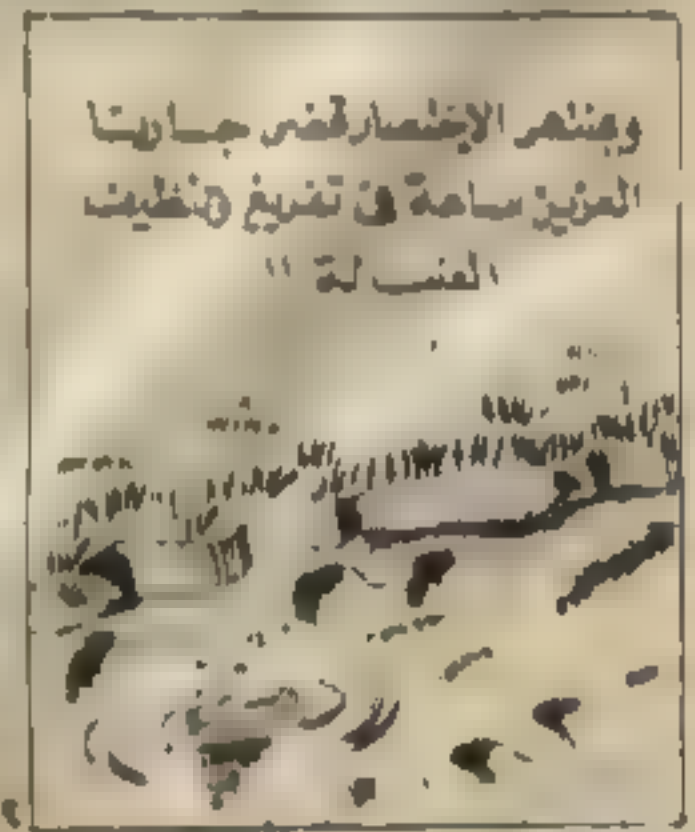 وبمنتهى الإختصار قضى جارنا
العزيز ساعة فى تفريغ وتنظيف
الغسالة "